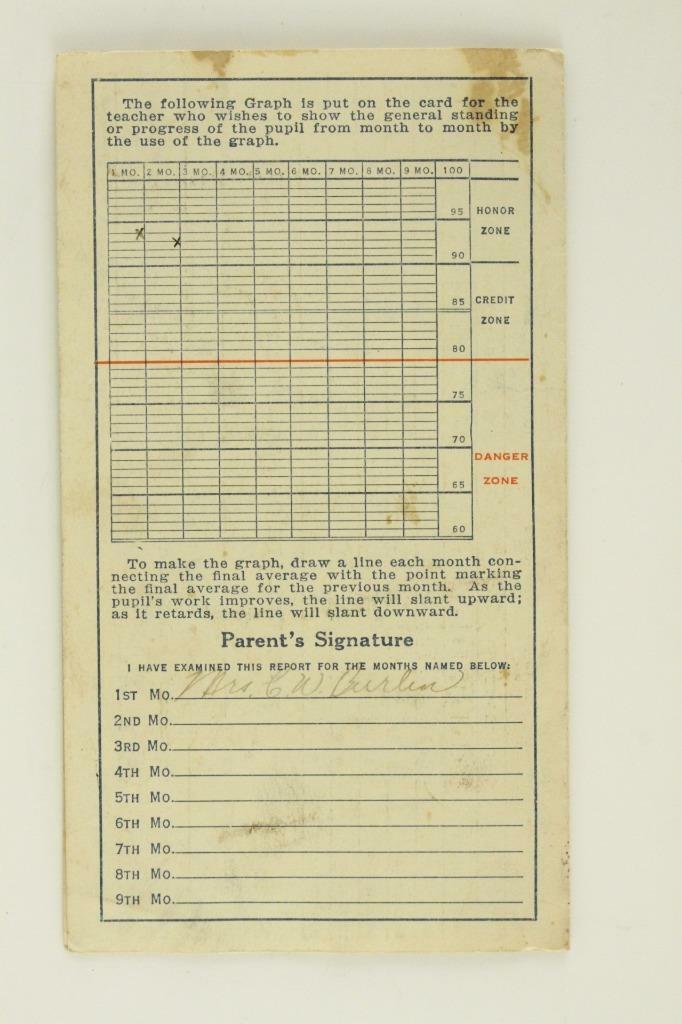 The following Graph is put on the card for the
teacher who wishes to show the general standing
or progress of the pupil from month to month by
the use of the graph.
1 MO. 2 MO. 3 MO. 4 MO. 5 MO. 6 MO. 7 MO. 8 MO. 9 MO. 100
95 HONOR
ZONE
90
85 CREDIT
ZONE
80
75
70
DANGER
65 ZONE
60
x
x
To make the graph, draw a line each month con-
necting the final average with the point marking
the final average for the previous month. As the
pupil's work improves, the line will slant upward;
as it retards, the line will slant downward.
Parent's Signature
I HAVE EXAMINED THIS REPORT FOR THE MONTHS NAMED BELOW:
1ST MO. Mrs. C. W.
2ND MO.
3RD MO.
4TH MO.
5TH MO.
6TH MO.
7TH MO.
8TH MO.
9TH MO.